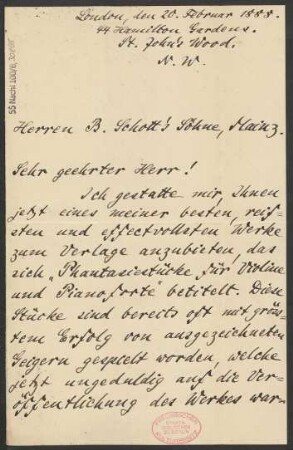 London, den 20. Februar 1888.
44 Hamilton Gardens.
St. John's Wood.
N. W.
55 Nachl 100/B,
Herren B. Schott's Söhne, Mainz.
Sehr geehrter Herr!
Ich gestatte mir, Ihnen
jetzt eines meiner besten, reif-
sten und effectvollsten Werke
zum Verlage anzubieten, das
sich „Phantasiestücke für Violine
und Pianoforte" betitelt. Diese
Stücke sind bereits oft mit gröss-
tem Erfolg von ausgezeichneten
Geigern gespielt worden, welche
jetzt ungeduldig auf die Ver-
öffentlichung des Werkes war-